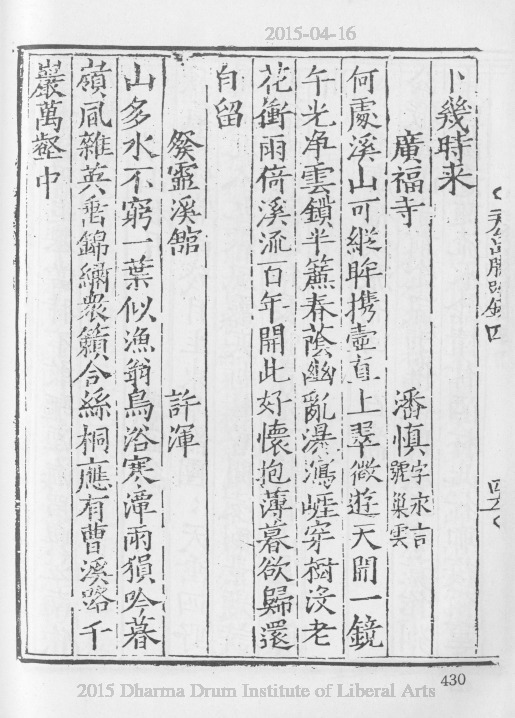 2015-04-16
天台勝蹟錄四
卜幾時来
廣福寺 潘慎 字求言
號巢雲
何處溪山可縱眸携壺直上翠微遊天開一鏡
午光净雲鎖半簾春蔭幽亂瀑瀉崕穿樹没老
花衝雨倚溪流百年開此好懷抱薄暮欲歸還
自留
發靈溪館 許渾
山多水不窮一葉似漁翁鳥浴寒潭雨猿吟暮
嶺風雜英垂錦繡衆籟合絲桐應有曹溪路千
巖萬壑中
430
2015 Dharma Drum Institute of Liberal Arts